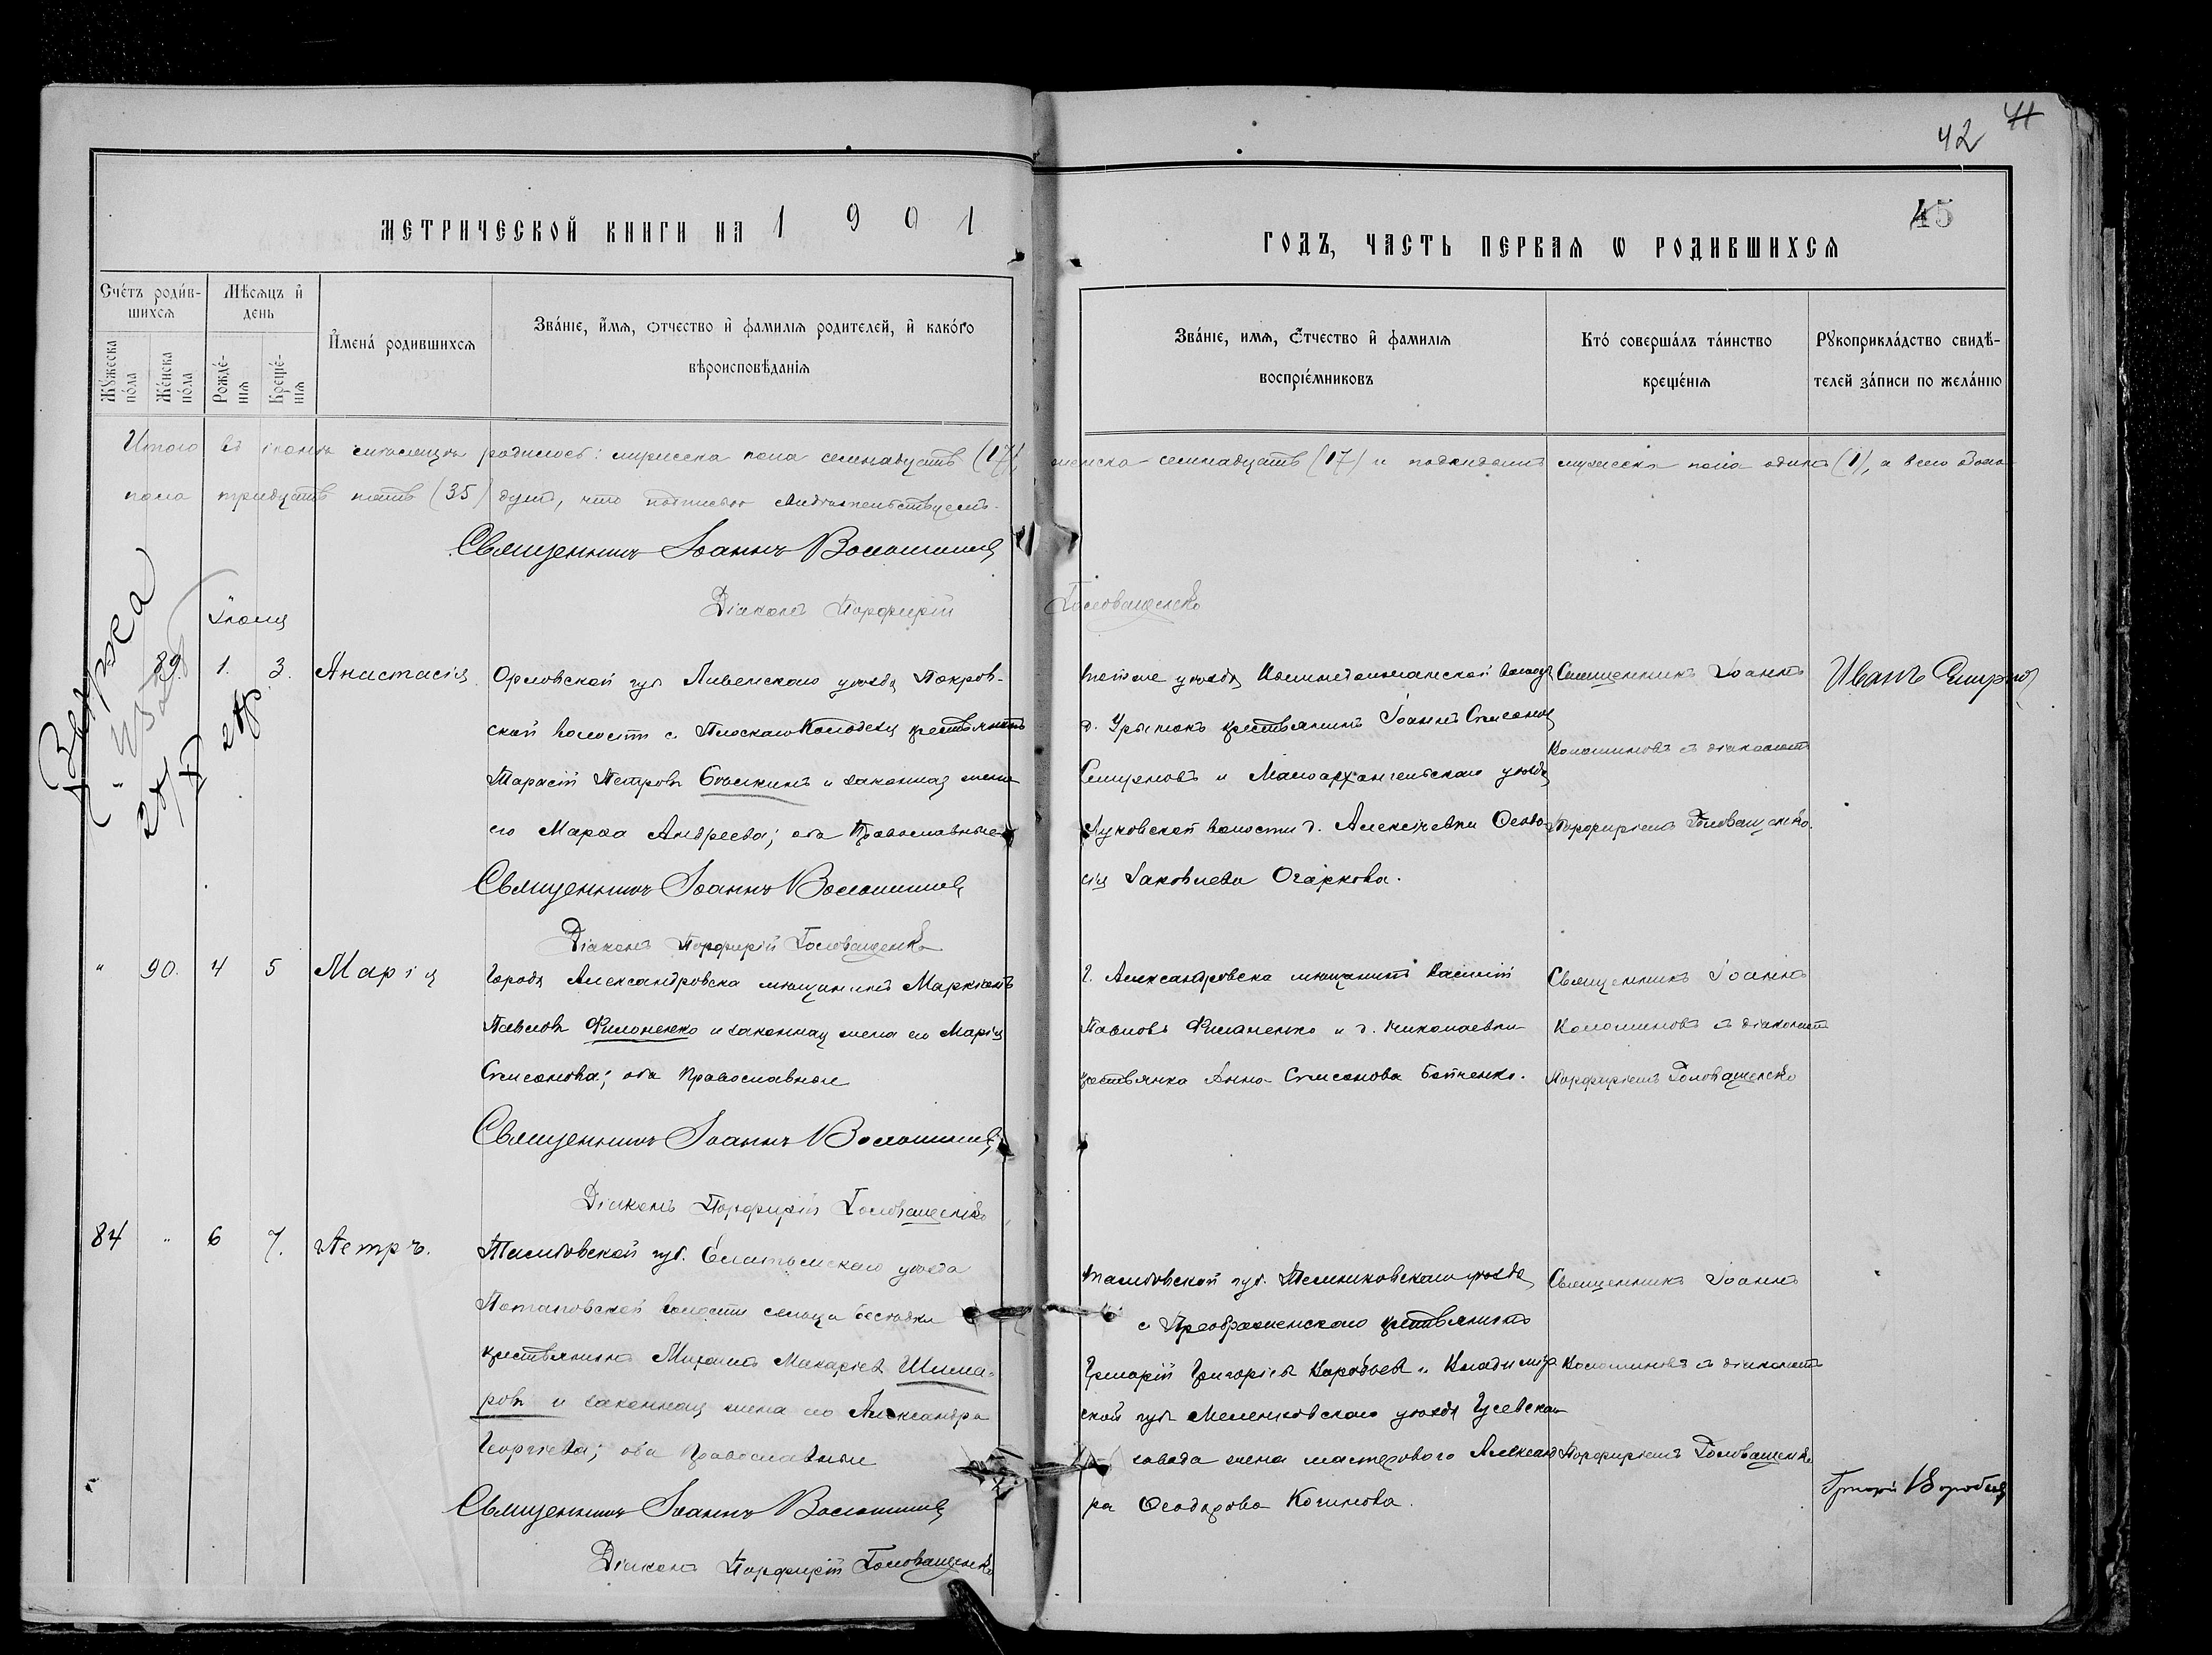 42 41
45
МЕТРИЧЕСКОЙ КНИГИ НА 1901
ГОДЪ, ЧАСТЬ ПЕРВАЯ Ѡ РОДИВШИХСЯ
Счетъ родившихся
Мѣсяцъ и день
Мужеска пола
Женска пола
Рожденія
Крещенія
Имена родившихся
Званіе, имя, отчество и фамилія родителей, и какого
вѣроисповѣданія
Званіе, имя, отчество и фамилія
воспріемниковъ
Кто совершалъ таинство
крещенія
Рукоприкладство свидѣ-
телей записи по желанію
Итого въ родилось: мужеска пола семнадцать (17), женска семнадцать (17) и подкидышъ мужеска пола одинъ (1), а всего обоего
пола тридцать пять (35) душъ, что подписью свидѣтельствуемъ.
Священникъ Іоаннъ Волошиновъ
Діаконъ Порфирій Головащенко
89. 1. 3. Анастасія
Орловской губ. Ливенскаго уѣзда Покров-
ской волости с. Плоскаго Колодезя крестьянинъ
Тарасій Петровъ и законная жена
его Марѳа Андреева; оба Православные
Священникъ Іоаннъ Волошиновъ
Діаконъ Порфирій Головащенко
уѣзда волости
д. крестьянинъ Іоаннъ Симеоновъ
Смирновъ и Малоархангельскаго уѣзда
волости д. Алексѣевки Ѳеодо-
сія Іаковлева Огаркова.
Священникъ Іоаннъ
Волошиновъ съ діакономъ
Порфиріемъ Головащенко.
Иванъ Смирновъ
" 90. 4 5 Марія
Города Александровска мѣщанинъ Маркіанъ
Павловъ Филоненко и законная жена его Марія
Симеонова; оба Православные
Священникъ Іоаннъ Волошиновъ
Діаконъ Порфирій Головащенко
г. Александровска мѣщанинъ Василій
Павловъ Филоненко и д. Николаевки
крестьянка Анна Симеонова Бойченко.
Священникъ Іоаннъ
Волошиновъ съ діакономъ
Порфиріемъ Головащенко
84 " 6 7. Петръ.
Тамбовской губ. Елатомскаго уѣзда
Потаповской волости сельца
крестьянинъ Михаилъ Макаріевъ Шима-
ровъ и законная жена его Александра
Георгіева; оба Православные
Священникъ Іоаннъ Волошиновъ
Діаконъ Порфирій Головащенко
Тамбовской губ. Темниковскаго уѣзда
с. Преображенскаго крестьянинъ
Григорій Григоріевъ Воробьевъ и Владимір-
ской губ. Меленковскаго уѣзда Гусевскаго
завода жена мастероваго Александ-
ра Ѳеодорова
Священникъ Іоаннъ
Волошиновъ съ діакономъ
Порфиріемъ Головащенко
Григорій Воробьевъ